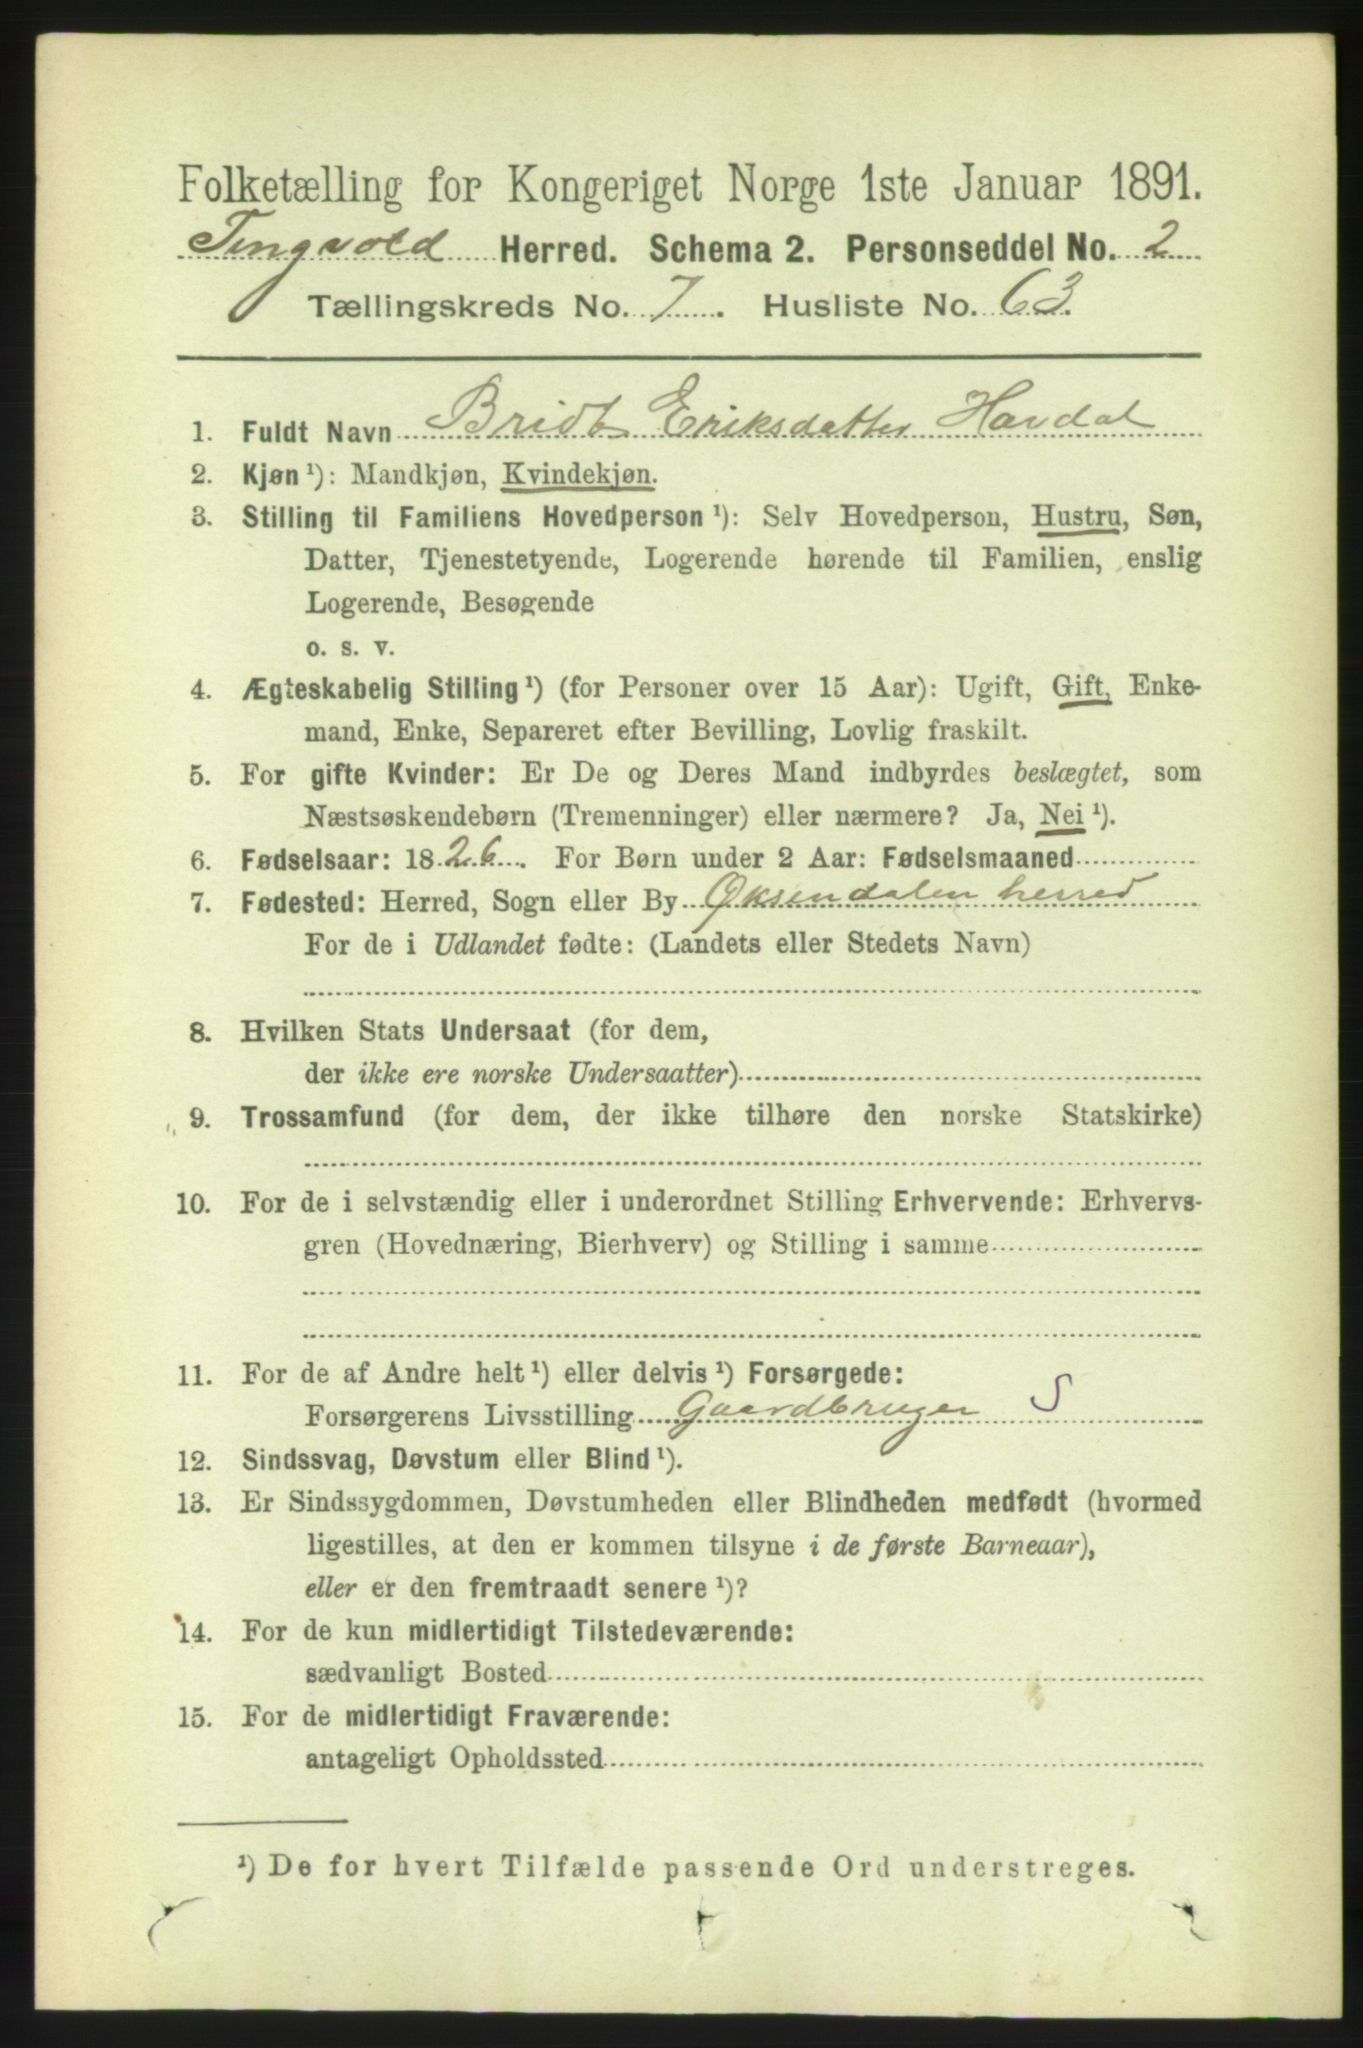 Folketælling for Kongeriget Norge 1ste Januar 1891.
Tingvold Herred. Schema 2. Personseddel No. 2
Tællingskreds No. 7. Husliste No. 63.
1. Fuldt Navn Bridt Eriksdatter Havdal
2. Kjøn ¹): Mandkjøn, Kvindekjøn.
3. Stilling til Familiens Hovedperson ¹): Selv Hovedperson, Hustru, Søn,
Datter, Tjenestetyende, Logerende hørende til Familien, enslig
Logerende, Besøgende
o. s. v.
4. Ægteskabelig Stilling ¹) (for Personer over 15 Aar): Ugift, Gift, Enke-
mand, Enke, Separeret efter Bevilling, Lovlig fraskilt.
5. For gifte Kvinder: Er De og Deres Mand indbyrdes beslægtet, som
Næstsøskendebørn (Tremenninger) eller nærmere? Ja, Nei ¹).
6. Fødselsaar: 1826. For Børn under 2 Aar: Fødselsmaaned
7. Fødested: Herred, Sogn eller By Øksendalen herred
For de i Udlandet fødte: (Landets eller Stedets Navn)
8. Hvilken Stats Undersaat (for dem,
der ikke ere norske Undersaatter)
9. Trossamfund (for dem, der ikke tilhøre den norske Statskirke)
10. For de i selvstændig eller i underordnet Stilling Erhvervende: Erhvervs-
gren (Hovednæring, Bierhverv) og Stilling i samme
11. For de af Andre helt ¹) eller delvis ¹) Forsørgede:
Forsørgerens Livsstilling Gaardbruger S
12. Sindssvag, Døvstum eller Blind ¹).
13. Er Sindssygdommen, Døvstumheden eller Blindheden medfødt (hvormed
ligestilles, at den er kommen tilsyne i de første Barneaar),
eller er den fremtraadt senere ¹)?
14. For de kun midlertidigt Tilstedeværende:
sædvanligt Bosted
15. For de midlertidigt Fraværende:
antageligt Opholdssted
¹) De for hvert Tilfælde passende Ord understreges.